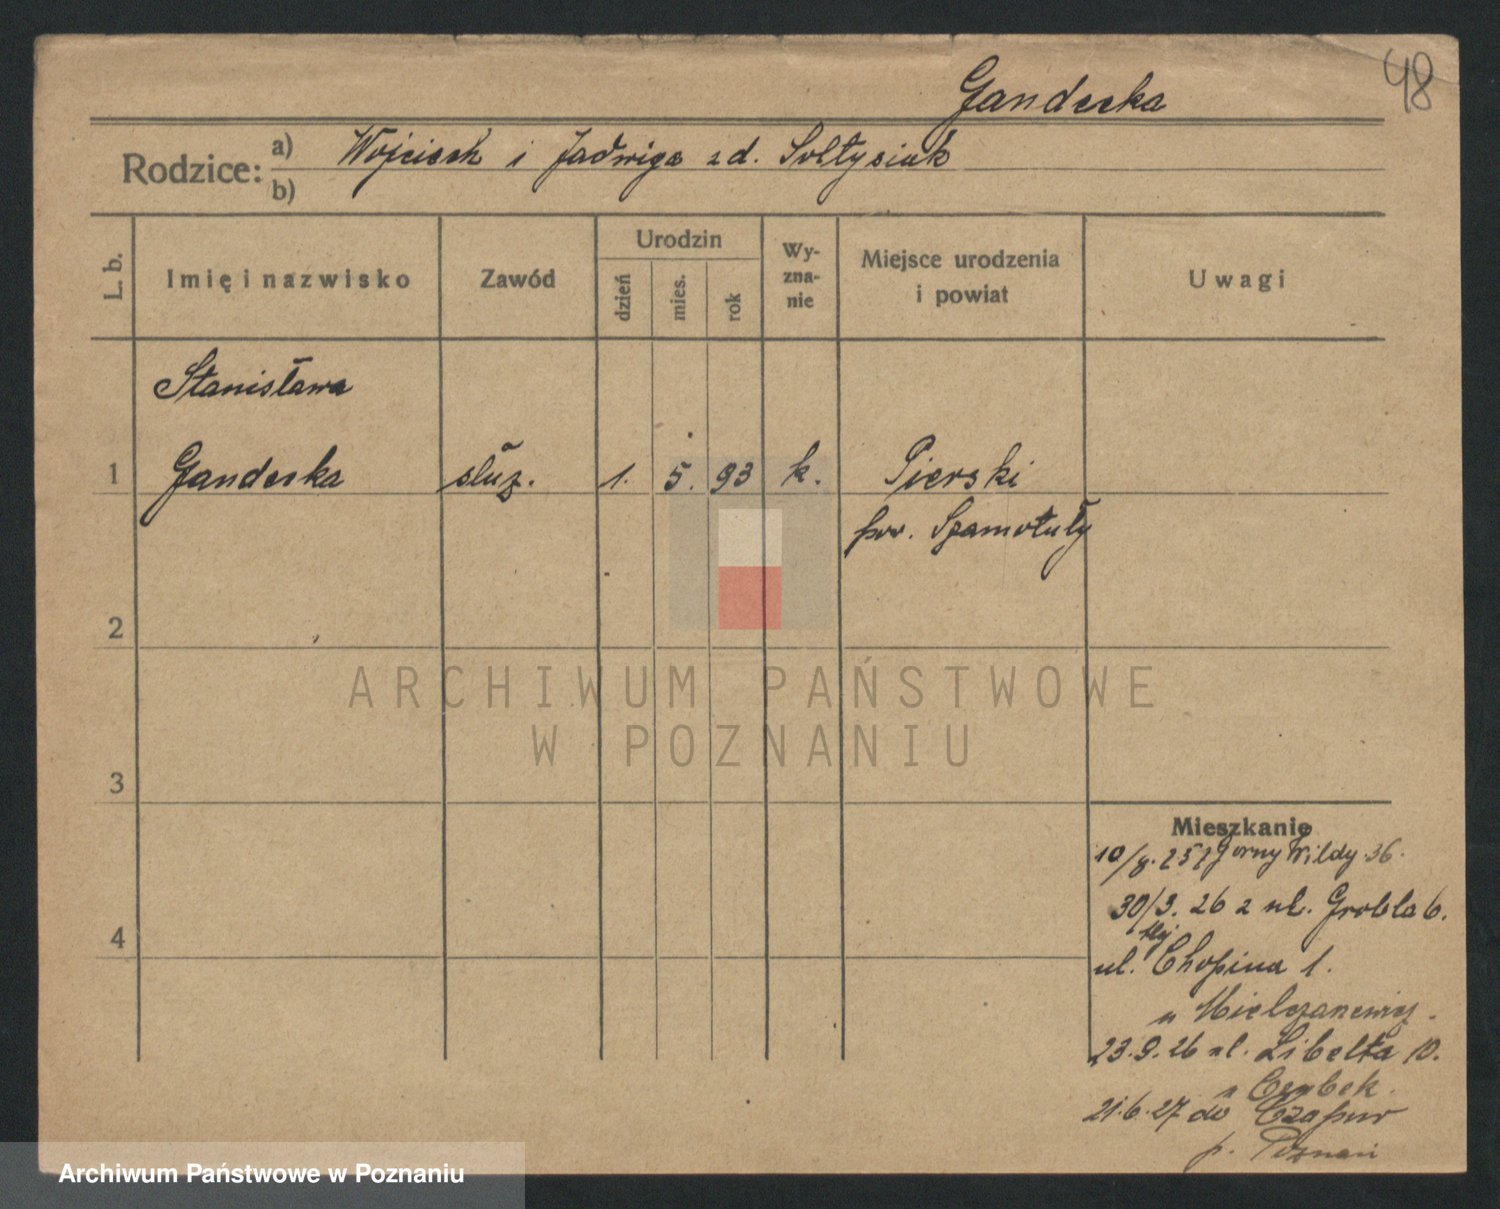 48
Gandecka
Rodzice: a) Wojciech i Jadwiga zd. Sołtysiak
b)
L. b.
Imię i nazwisko
Zawód
Urodzin
dzień
mies.
rok
Wy-
zna-
nie
Miejsce urodzenia
i powiat
Uwagi
Stanisława
1 Gandecka służ. 1. 5. 93 k. Pierski
pow. Szamotuły
2
3
4
Mieszkanie
10/8. 25 Górny Wildy 36.
30/3. 26 z ul. Grobla 6.
ul. Chopina 1.
u
23.9.26 ul. Libelta 10.
u
21.6.27 do Czapur
p. Poznań
ARCHIWUM PAŃSTWOWE
W POZNANIU
Archiwum Państwowe w Poznaniu